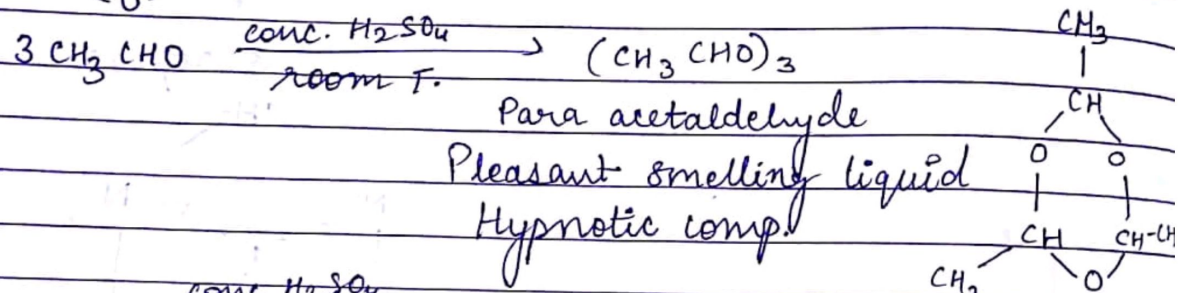 3 CH3 CHO conc. H2SO4 room T. → (CH3 CHO)3
Para acetaldehyde
Pleasant smelling liquid
Hypnotic comp.
CH3
CH
O O
CH CH-CH
CH3 O
conc H2SO4